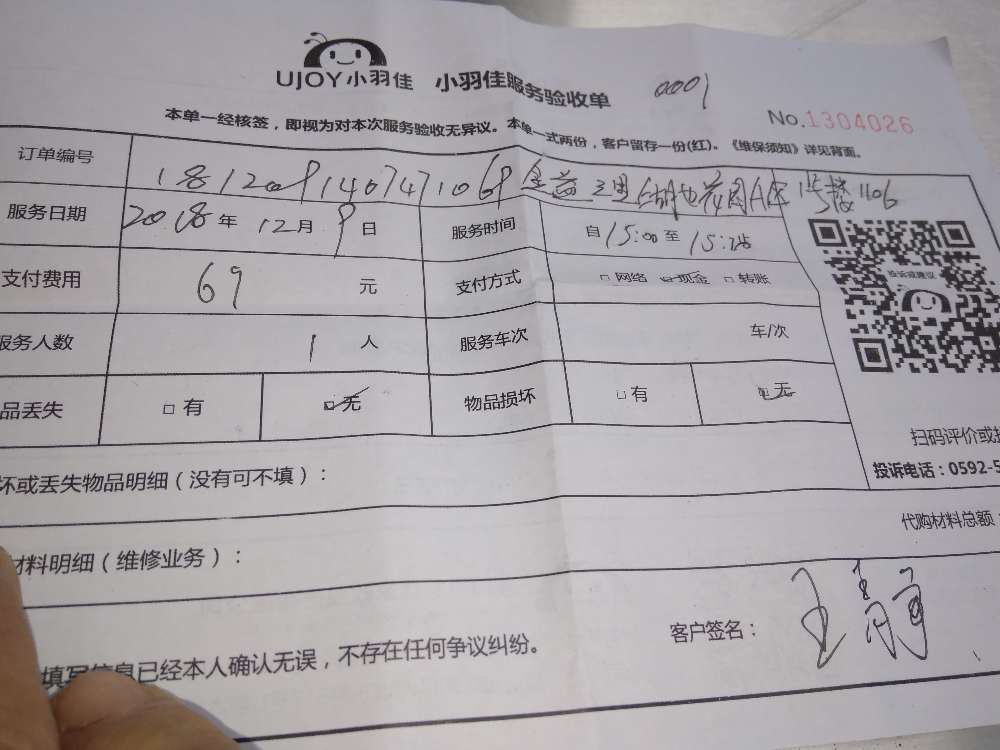 UJOY小羽佳 小羽佳服务验收单 0001
No.1304026
本单一经核签，即视为对本次服务验收无异议。本单一式两份，客户留存一份(红)。《维保须知》详见背面。
订单编号 1812091407471069 湖边花园A区1号楼1106
服务日期 2018年12月9日 服务时间 自15:00至15:
支付费用 69元 支付方式 □网络 ☑现金 □转账
服务人数 1人 服务车次 车/次
品丢失 □有 ☑无 物品损坏 □有 ☑无
投诉或建议
扫码评价或
投诉电话：0592-5
坏或丢失物品明细（没有可不填）：
代购材料总额：
材料明细（维修业务）：
客户签名：王
填写信息已经本人确认无误，不存在任何争议纠纷。